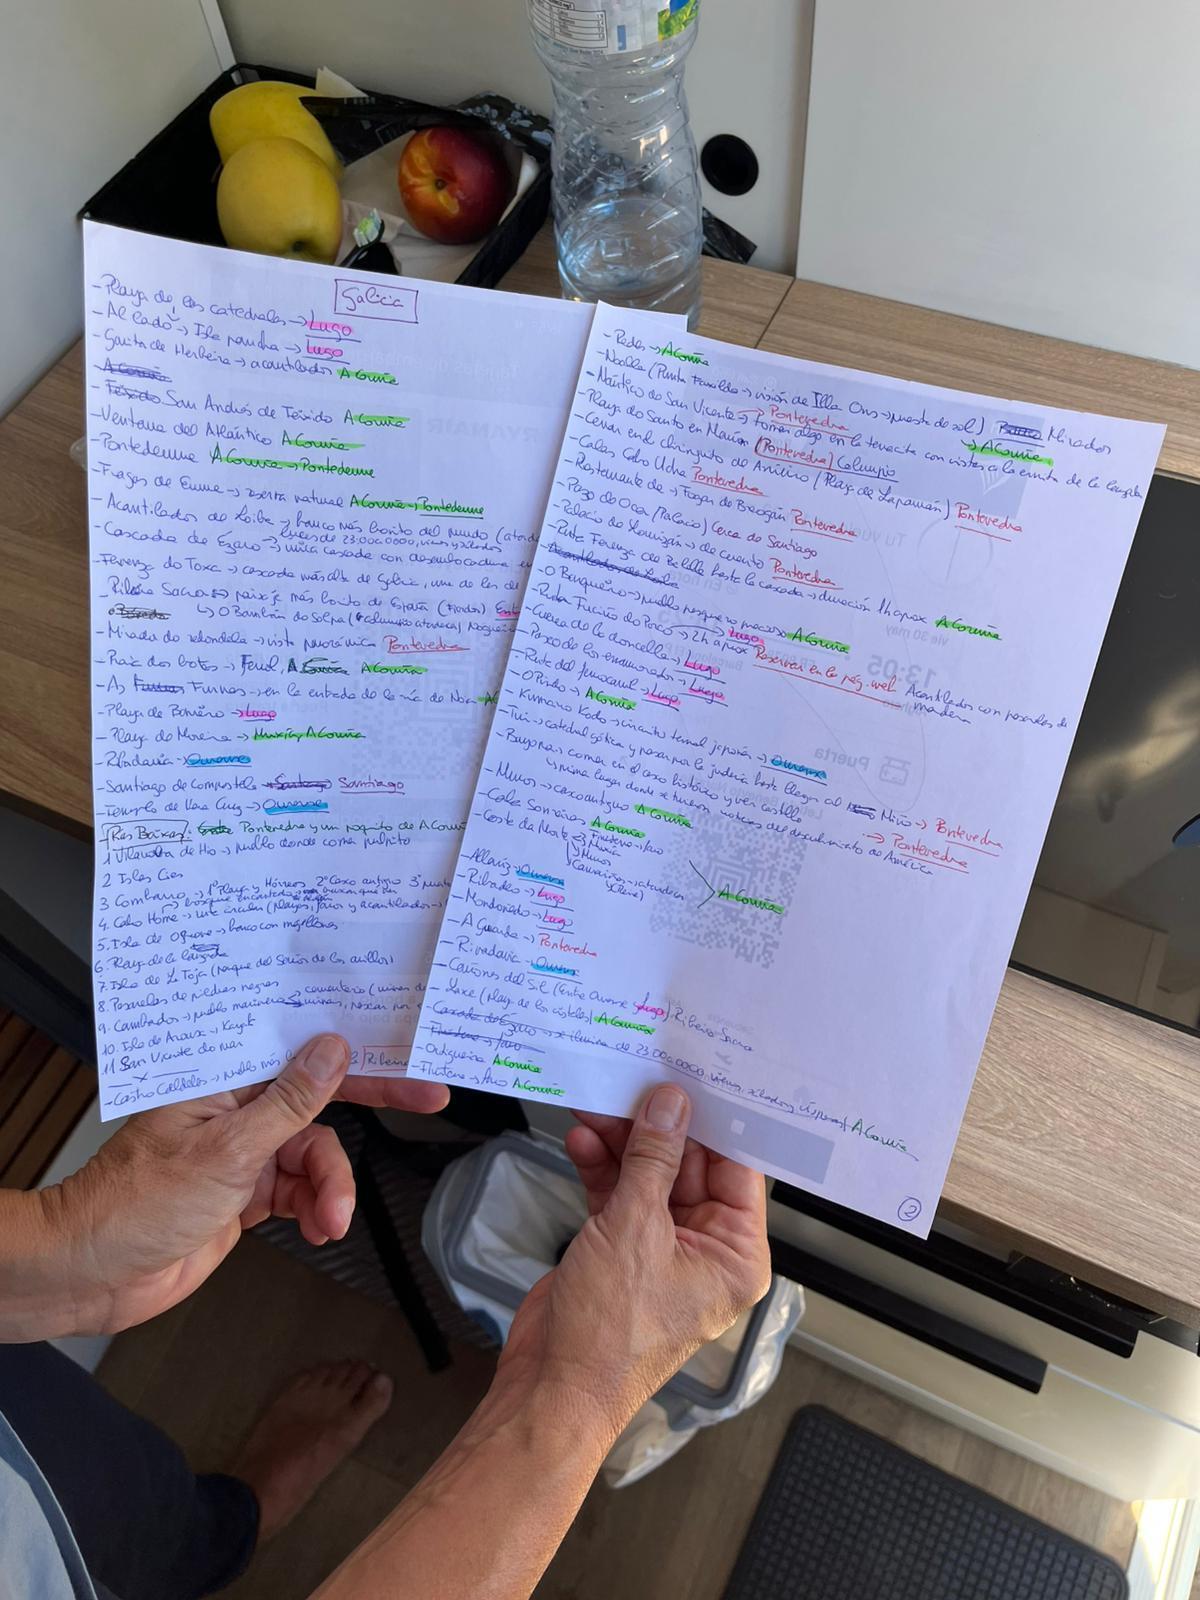 Galicia
- Playa de las catedrales → Lugo
- Al lado → Isla pancha → Lugo
- Garita de Herbeira → acantilados A Coruña
A Coruña
- Teixido San Andrés de Teixido A Coruña
- Ventana del Atlántico A Coruña
- Pontedeume A Coruña → Pontedeume
- Fragas de Eume → reserva natural A Coruña → Pontedeume
- Acantilados de Loiba y banco más bonito del mundo (atard
- Cascada de Ézaro → única cascada con desembocadura en
luces de 23:00 a 00:00, vienes y sábados
- Fervenza do Toxa → cascada más alta de Galicia, una de las de
- Ribeira Sacra → paisaje más bonito de España (Fiordos) Ent
↳ O Bambán do Solpor (columpio atarecer) Nogueira
- Mirador de redondela → vista panorámica Pontevedra
- Praia dos botes → Ferrol, A Coruña A Coruña
- As Furnas → en la entrada de la ría de Noia AC
- Playa de → Lugo
- Playa de Moreira → Muxía, A Coruña
- Ribadavia → Ourense
- Santiago de Compostela Santiago Santiago
- Templo de Vera Cruz → Ourense
Rías Baixas: Pontevedra y un poquito de A Coruña
1 Vilanova de Hío → pueblo donde comer pulpito
2 Islas Cíes
3 Combarro → 1º Playa y Hórreos 2º Casco antiguo 3º puerto
→ bosque encantado
4. Cabo Home → ruta circular (playas, faros y acantilados →
5. Isla de → banco con mejillones
6. Playa de la lanzada
7. Isla de La Toja (parque del Señor de los anillos)
8. Pasarelas de piedras negras
9. Cambados → pueblo marinero cementerio (ruinas de
ruinas, pescar por
10. Isla de Arousa → Kayak
11 San Vicente do mar
— x —
- Castro Caldelas → pueblo más Ribeira
- Redes → A Coruña
- Noalla (Punta Faxilda → visión de Illa Ons → puesta de sol) Mirador
→ A Coruña
- Náutico de San Vicente → tomar algo en la terracita con vistas a la ermita de la lanzada
→ Pontevedra
- Playa do Santo en Marín (Pontevedra) Columpio
- Cenar en el chiringuito de Aniceto (Playa de Lapamán) Pontevedra
- Calas Cabo Udra Pontevedra
- Restaurante de → Fogar de Breogán Pontevedra
- Pazo de Oca (Palacio) Cerca de Santiago
- Palacio de Lourizán → de cuento Pontevedra
- Ruta Fervenza de Belelle hasta la cascada → duración 1h aprox A Coruña
- Acantilados de Loiba
- O Barqueiro → pueblo pesquero precioso A Coruña
- Ruta Fuciño do Porco → 2h aprox → Lugo Reservar en la pág. web Acantilados con pasarelas de madera
- Cueva de la doncella → Lugo
- Paseo de los enamorados → Lugo
- Ruta del ferrocarril → Lugo
- O Pindo → A Coruña
- Kumano Kodo → circuito termal japonés → Ourense
- Tui → catedral gótica y pasear por la judería hasta llegar al Miño → Pontevedra
- Bayona → comer en el casco histórico y ver castillo
↳ primer lugar donde se tuvieron noticias del descubrimiento de América → Pontevedra
- Muros → casco antiguo A Coruña
- Cala Sonreiras A Coruña
- Costa da Morte Finisterre → faro
Muxía
Muros
Camariñas → atardecer
A Coruña
- Allariz → Ourense
- Ribadeo → Lugo
- Mondoñedo → Lugo
- A Guarda → Pontevedra
- Rivadavia → Ourense
- Cañones del Sil (Entre Ourense y Lugo) Ribeira Sacra
- Laxe (playa de los cristales) A Coruña
- Cascada de Ézaro → se ilumina de 23:00 a 00:00, viernes, sábados y vísperas A Coruña
- Finisterre → faro
- Ortigueira A Coruña
- Fisterra → faro A Coruña
2